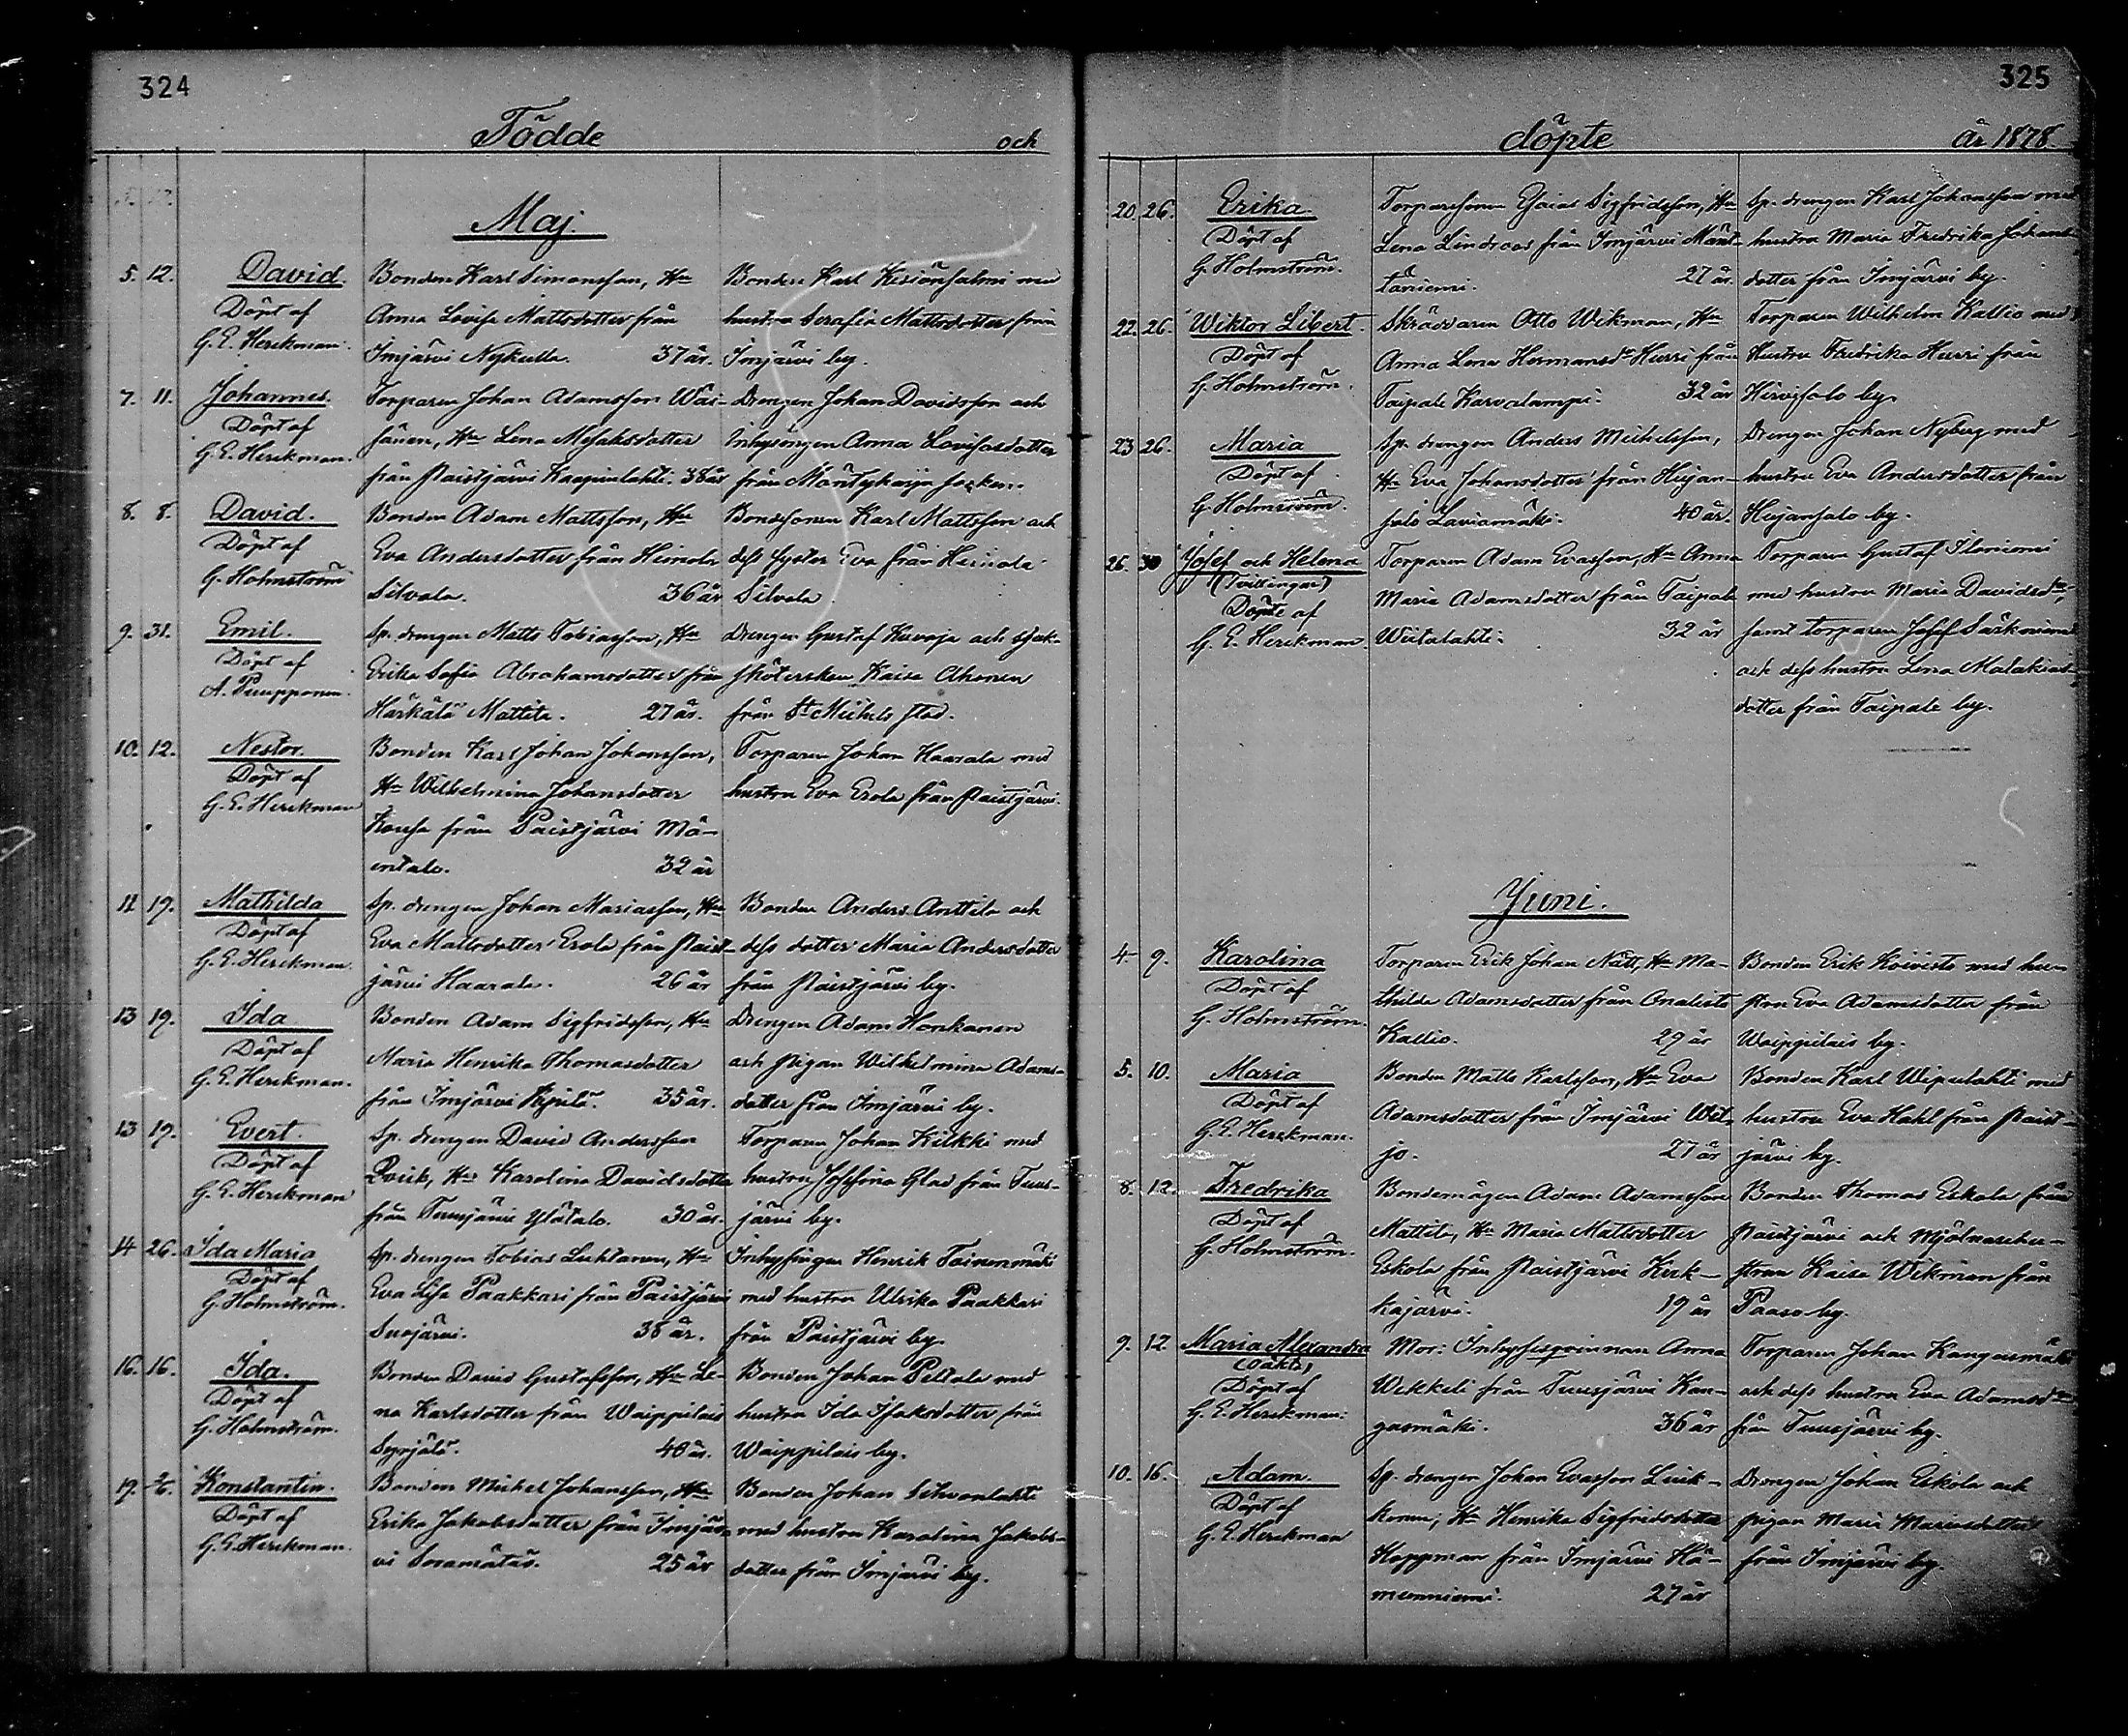 324
Födde och
Maj.
5. 12. David. Bonden Karl Simonsson, Hu Bonden Karl Kesiönsalmi med
Döpt af Anna Lovisa Mattsdotter från hustru Serafia Mattsdotter från
G. E. Herckman. Imjärvi Nykulla. 37 år. Imjärvi by.
7. 11. Johannes. Torparen Johan Adamsson Wäi- Drengen Johan Davidsson och
Döpt af sänen, Hu Lena Mesaksdotter Inhysingen Anna Lovisasdotter
G. E. Herckman. från Paistjärvi Kaapinlahti. 38 år från Mäntyharju socken.
8. 8. David. Bonden Adam Mattsson, Hu Bondesonen Karl Mattsson och
Döpt af Eva Andersdotter från Heinola dess syster Eva från Heinola
G. Holmström Silvola. 36 år Silvola
9. 31. Emil. Sp. drengen Matts Tobiasson, Hu Drengen Gustaf Kuvaja och sjuk-
Döpt af Erika Sofia Abrahamsdotter från sköterskan Kaisa Ahonen
A. Puupponen. Härkälä Mattila. 27 år. från St Michels stad.
10. 12. Nestor. Bonden Karl Johan Johansson, Torparen Johan Haarala med
Döpt af Hu Wilhelmina Johansdotter hustru Eva Erola från Paistjärvi.
G. E. Herckman Kousa från Paistjärvi Mä-
entalo. 32 år
11 19. Mathilda Sp. drengen Johan Mariasson, Hu Bonden Anders Anttila och
Döpt af Eva Mattsdotter Erola från Paist- dess dotter Maria Andersdotter
G. E. Herckman. järvi Haarala. 26 år från Paistjärvi by.
13 19. Ida Bonden Adam Sigfridsson, Hu Drengen Adam Honkanen
Döpt af Maria Henrika Thomasdotter och pigan Wilhelmina Adams-
G. E. Herckman. från Imjärvi 35 år. dotter från Imjärvi by.
13 19. Evert. Sp. drengen David Andersson Torparen Johan Kilkki med
Döpt af Qvick, Hu Karolina Davidsdotter hustru Josefina Glad från Tuus-
G. E. Herckman från Tuusjärvi Ylätalo. 30 år. järvi by.
14 26. Ida Maria Sp. drengen Tobias Luktanen, Hu Inhysingen Henrik Toivenmäki
Döpt af Eva Lisa Paakkari från Paistjärvi med hustru Ulrika Paakkari
G. Holmström. Suojärvi. 38 år. från Paistjärvi by.
16. 16. Ida. Bonden David Gustafsson, Hu Le- Bonden Johan Peltola med
Döpt af na Karlsdotter från Waippilais hustru Ida Isaksdotter från
G. Holmström. Syrjälä. 40 år. Waippilais by.
19. 2/6. Konstantin. Bonden Mickel Johansson, Hu Bonden Johan Sihvonlahti
Döpt af Erika Jakobsdotter från Imjär- med hustru Karolina Jakobs-
G. E. Herckman. vi Soramätäs. 25 år dotter från Imjärvi by.
325
döpte År 1878.
20. 26. Erika. Torparesonen Esaias Sigfridsson, Hu Sp. drengen Karl Johansson med
Döpt af Lena Lindroos från Imjärvi Mänt- hustru Maria Fredrika Johans-
G. Holmström. täniemi. 27 år. dotter från Imjärvi by.
22. 26. Wiktor Libert. Skräddaren Otto Wikman, Hu Torparen Wilhelm Kallio med
Döpt af Anna Lena Hermansdr Hurri från Hustru Fredrika Hurri från
G. Holmström. Taipale Karvalampi. 32 år Hirvisalo by.
23 26. Maria Sp. drengen Anders Michelsson, Drengen Johan Nyberg med
Döpt af Hu Eva Johansdotter från Hujan- hustru Eva Andersdotter från
G. Holmström. salo Laviamäki. 40 år. Hujansalo by.
26. 30 Josef och Helena Torparen Adam Evasson, Hu Anna Torparen Gustaf Iloniemi
(Tvillingar) Maria Adamsdotter från Taipale med hustru Maria Davidsdr,
Döpte af Wiitalahti. 32 år samt torparen Josef Särkiniemi
G. E. Herckman. och dess hustru Lena Malakias-
dotter från Taipale by.
Juni.
4. 9. Karolina Torparen Erik Johan Nätt, Hu Ma- Bonden Erik Koivisto med hu-
Döpt af thilda Adamsdotter från Onalisto stru Eva Adamsdotter från
G. Holmström. Kallio. 29 år Waippilais by.
5. 10. Maria Bonden Matts Karlsson, Hu Eva Bonden Karl Wipulahti med
Döpt af Adamsdotter från Imjärvi Wil- hustru Eva Hahl från Paist-
G. E. Herckman. jo. 27 år järvi by.
8. 12. Fredrika Bondemågen Adam Adamsson Bonden Thomas Eskola från
Döpt af Mattila, Hu Maria Mattsdotter Paistjärvi och Mjölnarehu-
G. Holmström. Eskola från Paistjärvi Kirk- strun Kaisa Wikman från
kajärvi. 19 år Paaso by.
9. 12 Maria Alexandra Mor: Inhysesqvinnan Anna Torparen Johan Kangasmäki
(oäkta) Wekkeli från Tuusjärvi Kan- och dess hustru Eva Adamsdr
Döpt af gasmäki. 36 år från Tuusjärvi by.
G. E. Herckman.
10. 16. Adam. Sp. drengen Johan Evasson Liik- Drengen Johan Eskola och
Döpt af konen, Hu Henrika Sigfridsdotter pigan Maria Mariasdotter
G. E. Herckman Koppman från Imjärvi Hä- från Imjärvi by.
menniemi. 27 år